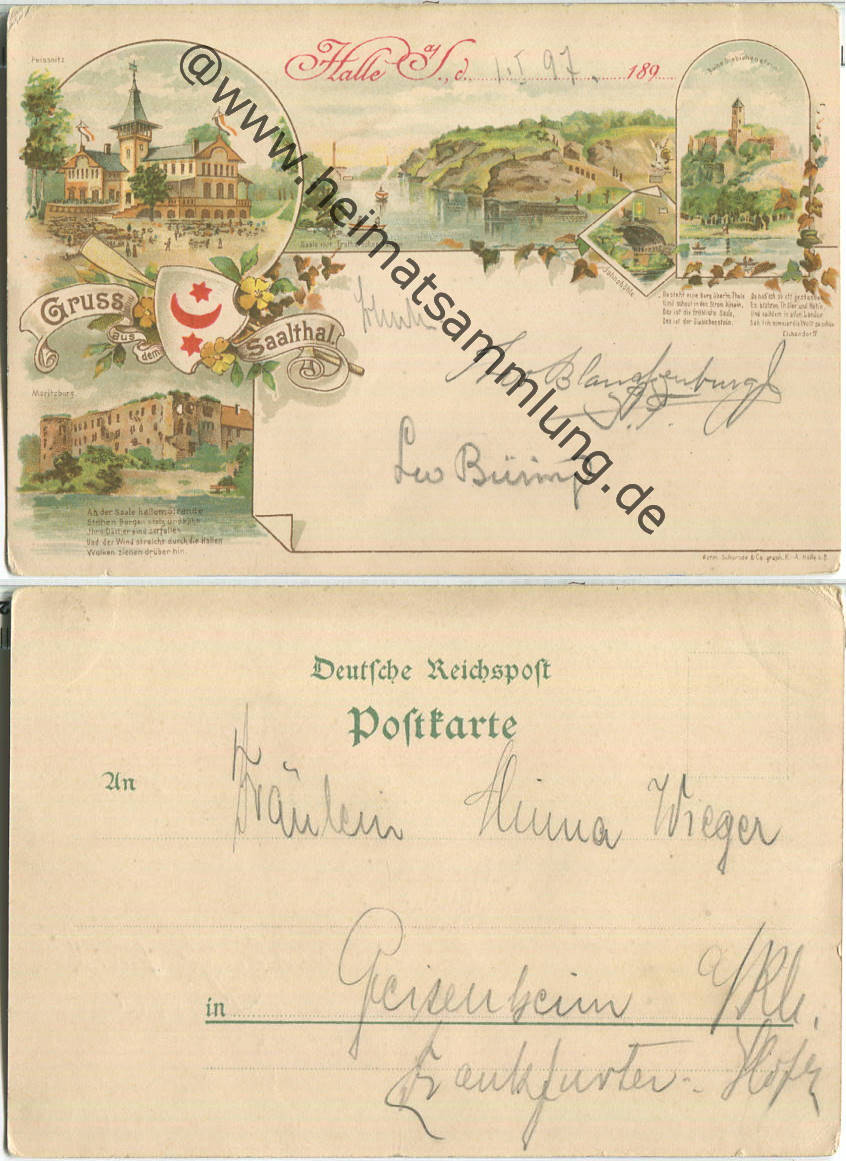 Peissnitz
Halle a/S., d. 1.I 97. 189
Saale mit Trotha
Jahnshöhle.
Gruss
aus
dem
Saalthal.
Da steht eine Burg überm Thale
Und schaut in den Strom hinein,
Das ist die fröhliche Saale,
Das ist der Giebichenstein.
Da hab ich so oft gestanden
Es blühten Thäler und Höh'n,
Und seitdem in allen Landen
Sah ich nimmer die Welt so schön
Eichendorff
Moritzburg
An der Saale hellem Strande
Stehen Burgen stolz und kühn
Ihre Dächer sind zerfallen
Und der Wind streicht durch die Hallen
Wolken ziehen drüber hin.
Blankenburg
Leo Büring
@www.heimatsammlung.de
Deutsche Reichspost
Postkarte
An Fräulein Minna Wieger
in Geisenheim a/Rh.
Frankfurter-Hof